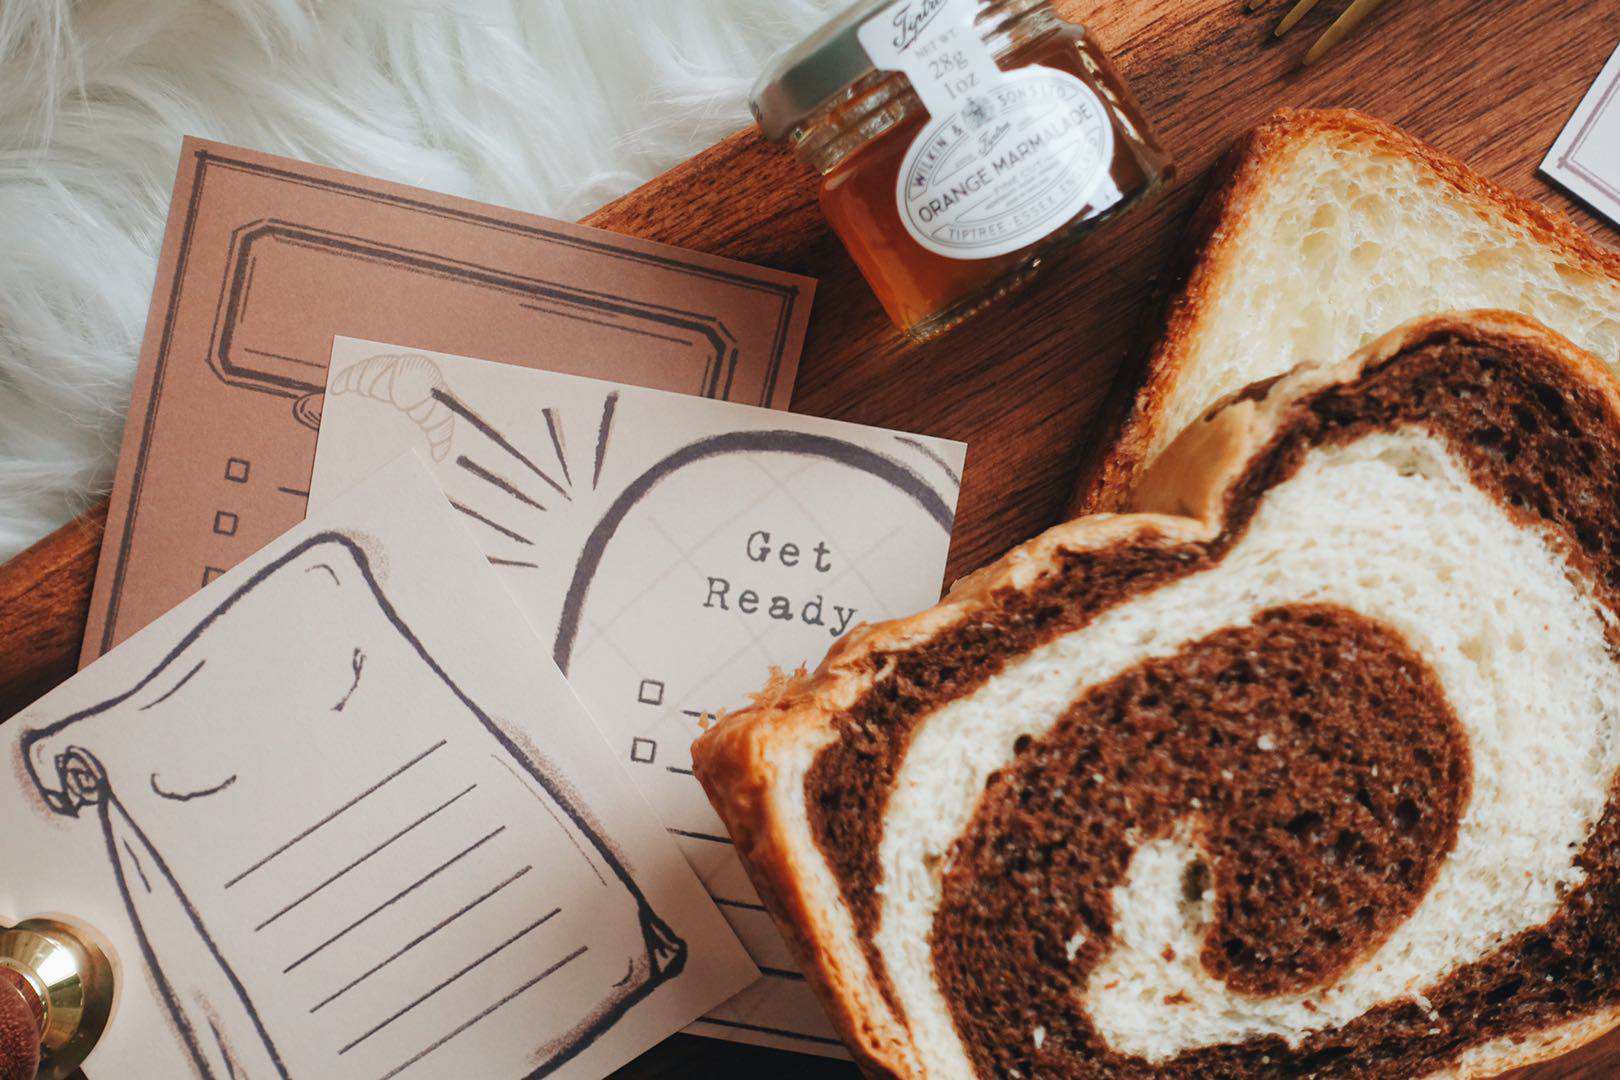 Tiptree
NET WT.
28g
1oz
WILKIN & SONS LTD
Tiptree
ORANGE MARMALADE
TIPTREE · ESSEX
Get
Ready